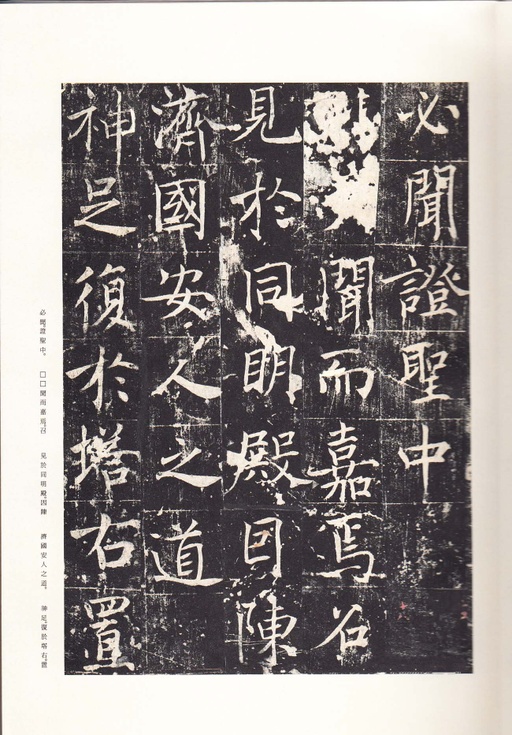 必聞證聖中
聞而嘉焉召
見於同明殿因陳
濟國安人之道
神足復於塔右置
必聞證聖中。 □□聞而嘉焉召 見於同明殿因陳 濟國安人之道。 神足復於塔右置